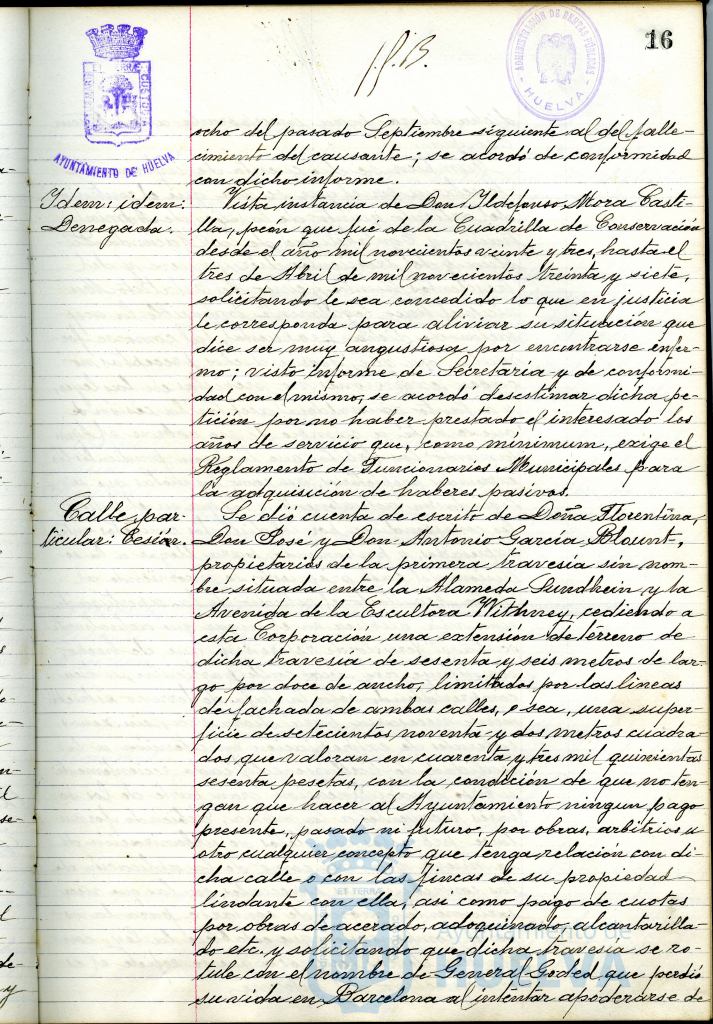 16
J.P.B.
ADMINISTRACIÓN DE RENTAS PÚBLICAS
HUELVA
AYUNTAMIENTO DE HUELVA
ocho del pasado Septiembre siguiente al del falle-
cimiento del causante; se acordó de conformidad
con dicho informe.
Idem: idem:
Denegada.
Vista instancia de Don Ildefonso Mora Casti-
lla, peón que fué de la Cuadrilla de Conservación
desde el año mil novecientos veinte y tres, hasta el
tres de Abril de mil novecientos treinta y siete,
solicitando le sea concedido lo que en justicia
le corresponda para aliviar su situación que
dice ser muy angustiosa por encontrarse enfer-
mo; visto informe de Secretaría y de conformi-
dad con el mismo, se acordó desestimar dicha pe-
tición por no haber prestado el interesado los
años de servicio que, como mínimum, exige el
Reglamento de Funcionarios Municipales para
la adquisición de haberes pasivos.
Calle par-
ticular: Cesión.
Se dió cuenta de escrito de Doña Florentina,
Don José y Don Antonio García Blount,
propietarios de la primera travesía sin nom-
bre situada entre la Alameda Sundhein y la
Avenida de la Escultora Withney, cediendo a
esta Corporación una extensión de terreno de
dicha travesía de sesenta y seis metros de lar-
go por doce de ancho, limitados por las lineas
de fachada de ambas calles, o sea, una super-
ficie de setecientos noventa y dos metros cuadra-
dos que valoran en cuarenta y tres mil quinientas
sesenta pesetas, con la condición de que no ten-
gan que hacer al Ayuntamiento ningun pago
presente, pasado ni futuro, por obras, arbitrios u
otro cualquier concepto que tenga relación con di-
cha calle o con las fincas de su propiedad
lindante con ella, asi como pago de cuotas
por obras de acerado, adoquinado, alcantarilla-
do etc. y solicitando que dicha travesía se ro-
tule con el nombre de General Goded que perdió
su vida en Barcelona al intentar apoderarse de
Ayuntamiento de
HUELVA